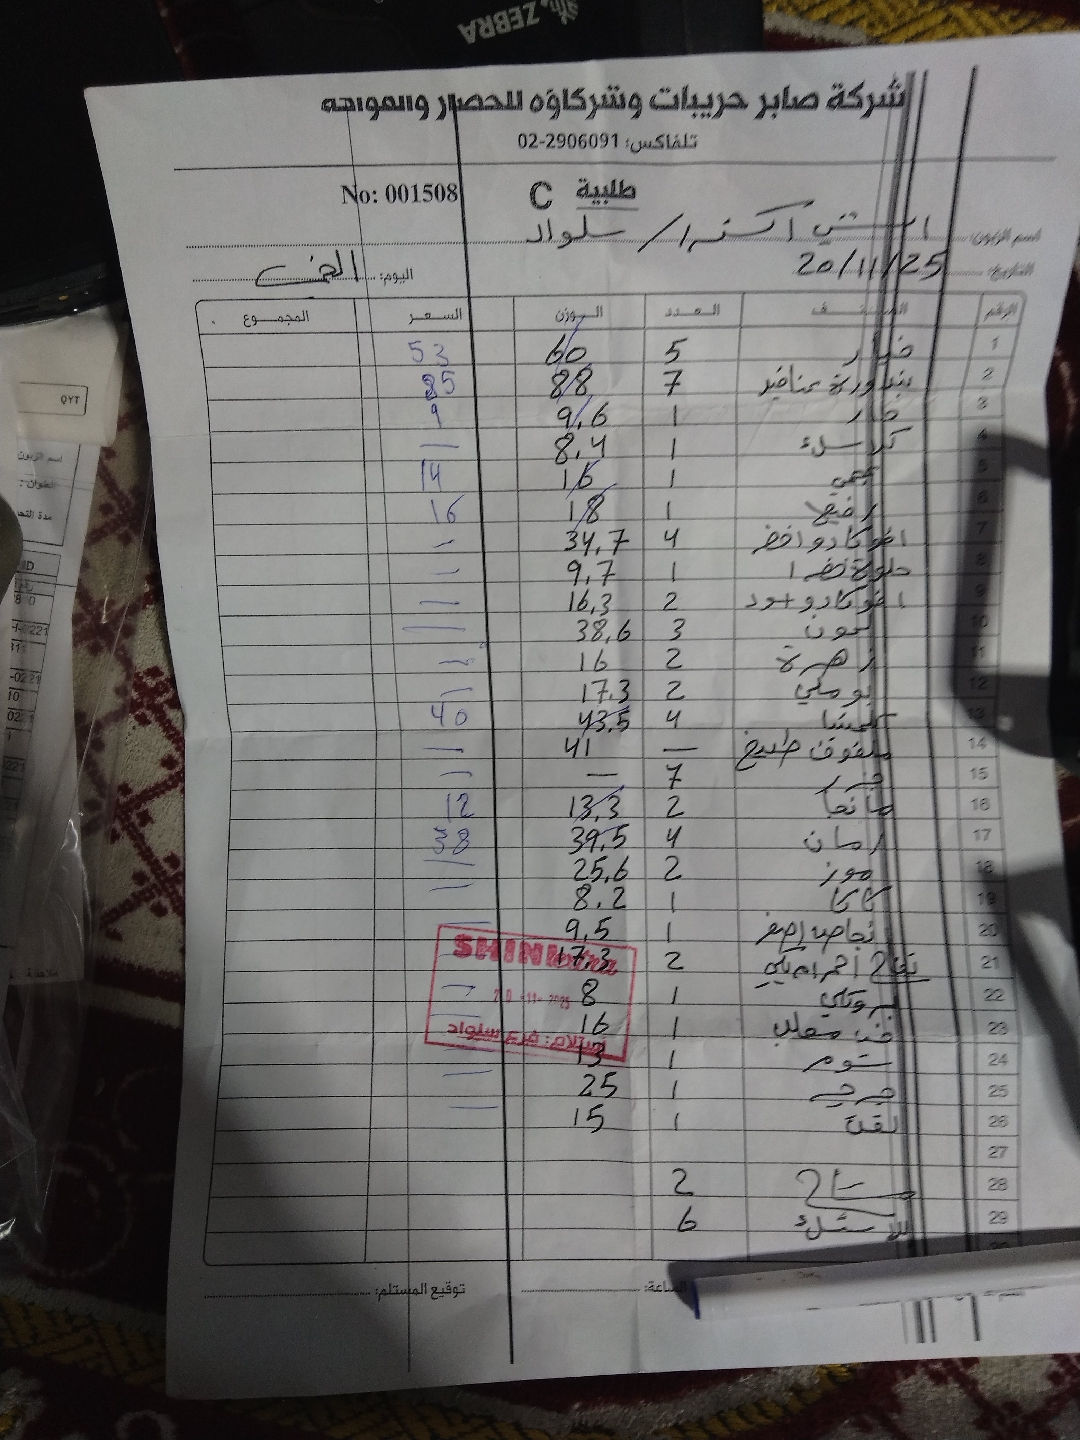 ZEBRA
شركة صابر حريبات وشركاؤه للخضار والفواكه
تلفاكس: 02-2906091
طلبية C No: 001508
اسم الزبون: الشني اكسترا / سلواد
التاريخ: 20/11/25 اليوم:
الرقم الصنف العدد الوزن السعر المجموع
1 خيار 5 60 53
2 بندورة عناقيد 7 88 85
3 1 9,6 9
4 1 8,4 —
5 1 16 14
6 1 18 16
7 افوكادو اخضر 4 34,7 —
8 1 9,7 —
9 افوكادو اسود 2 16,3 —
10 ليمون 3 38,6 —
11 زهرة 2 16 —
12 بوملي 2 17.3 —
13 كلمنتينا 4 43.5 40
14 ملفوف طبيخ — 41 —
15 7 — —
16 مانجا 2 13,3 12
17 رمان 4 39.5 38
18 موز 2 25,6 —
19 كاكا 1 8.2 —
20 نجاص اصفر 1 9,5 —
21 تفاح احمر امريكي 2 17,3
22 بروكلي 1 8 —
23 1 16
24 ثوم 1 13 —
25 1 25 —
26 1 15 —
27
28 2
29 6
SHINI extra
20-11-2025
استلام: فرع سلواد
الساعة: توقيع المستلم:
QTY
اسم الزبون
العنوان:
ID